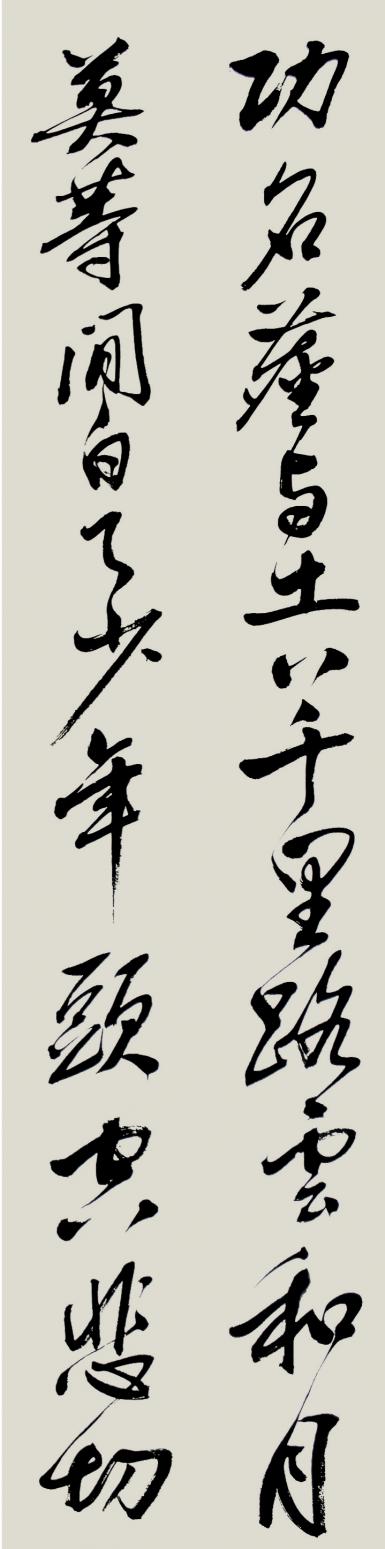 功名塵与土八千里路雲和月
莫等閒白了少年頭空悲切